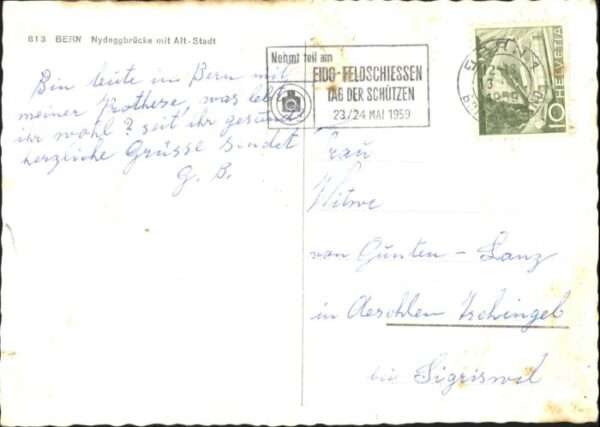 813 BERN Nydeggbrücke mit Alt-Stadt
Nehmt teil am
EIDG-FELDSCHIESSEN
TAG DER SCHÜTZEN
23/24 MAI 1959
BERN
HELVETIA
10
Bin heute in Bern mit
meiner Prothese, was lebt
ihr wohl? seit ihr gesund
herzliche Grüsse sendet
G. B.
Frau
Witwe
von Gunten - Lanz
in Aeschlen Tschingel
bei Sigriswil